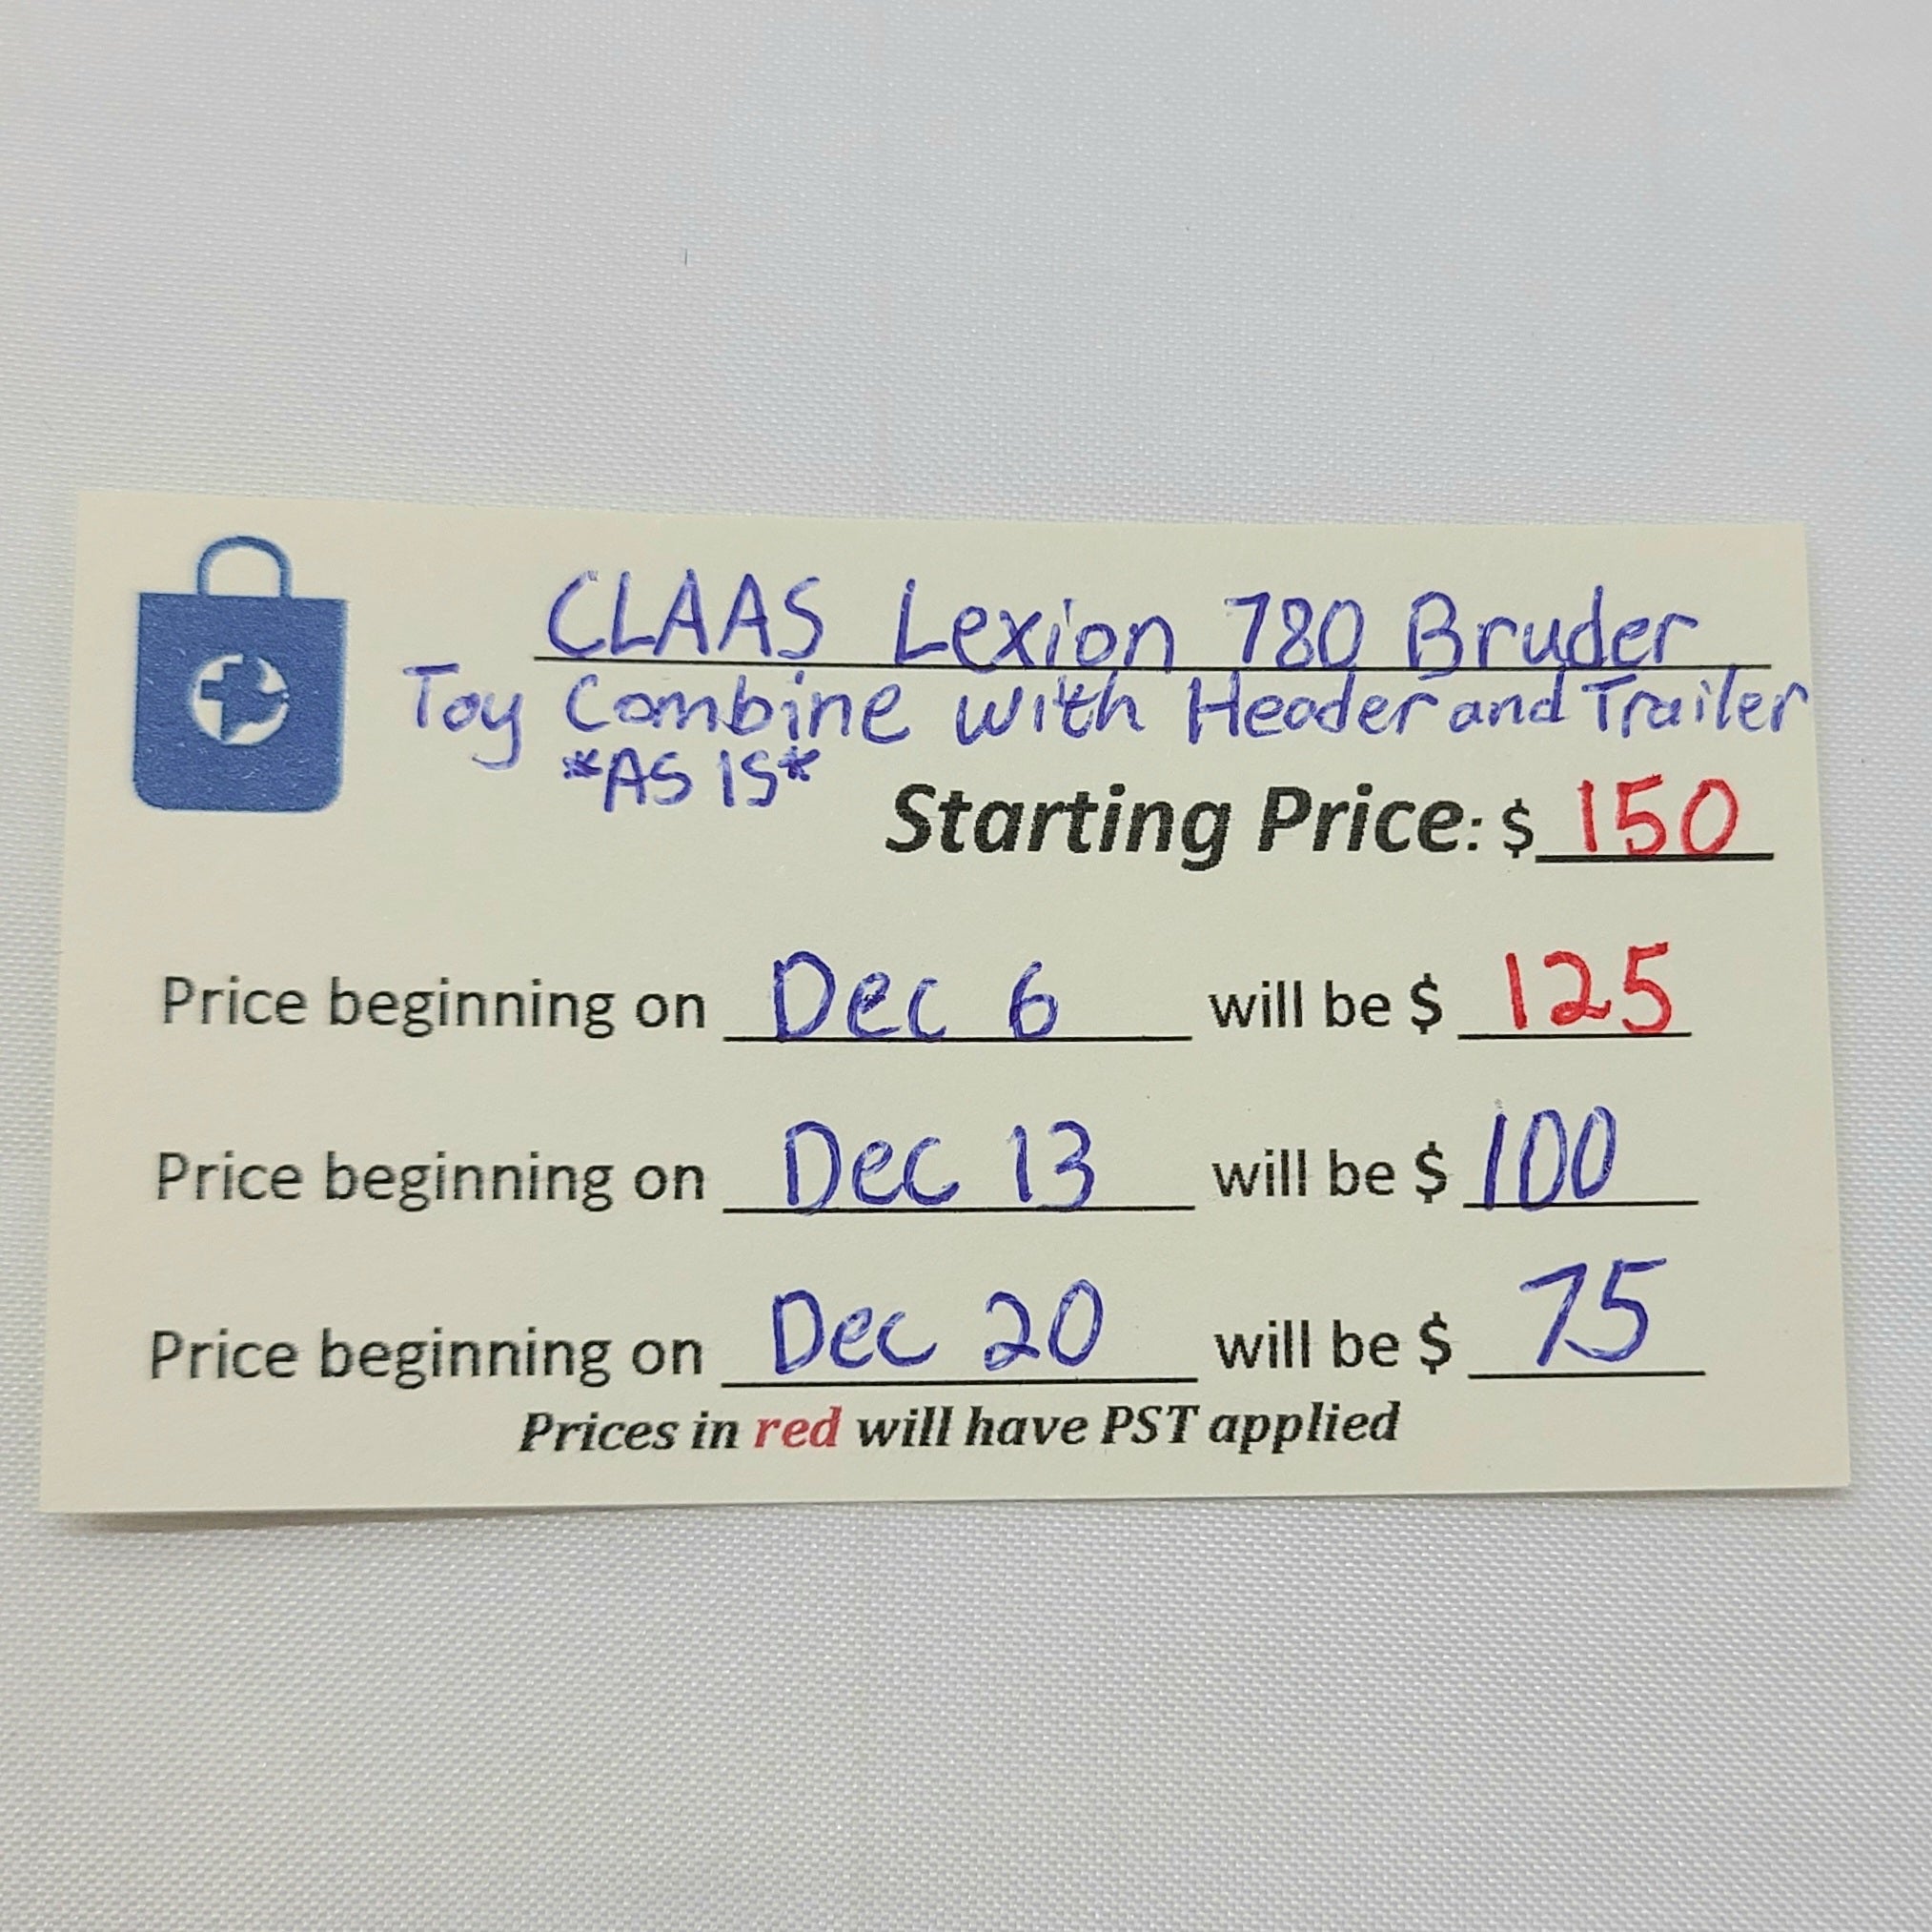 CLAAS Lexion 780 Bruder
Toy Combine with Header and Trailer
*AS IS*
Starting Price: $ 150
Price beginning on Dec 6 will be $ 125
Price beginning on Dec 13 will be $ 100
Price beginning on Dec 20 will be $ 75
Prices in red will have PST applied